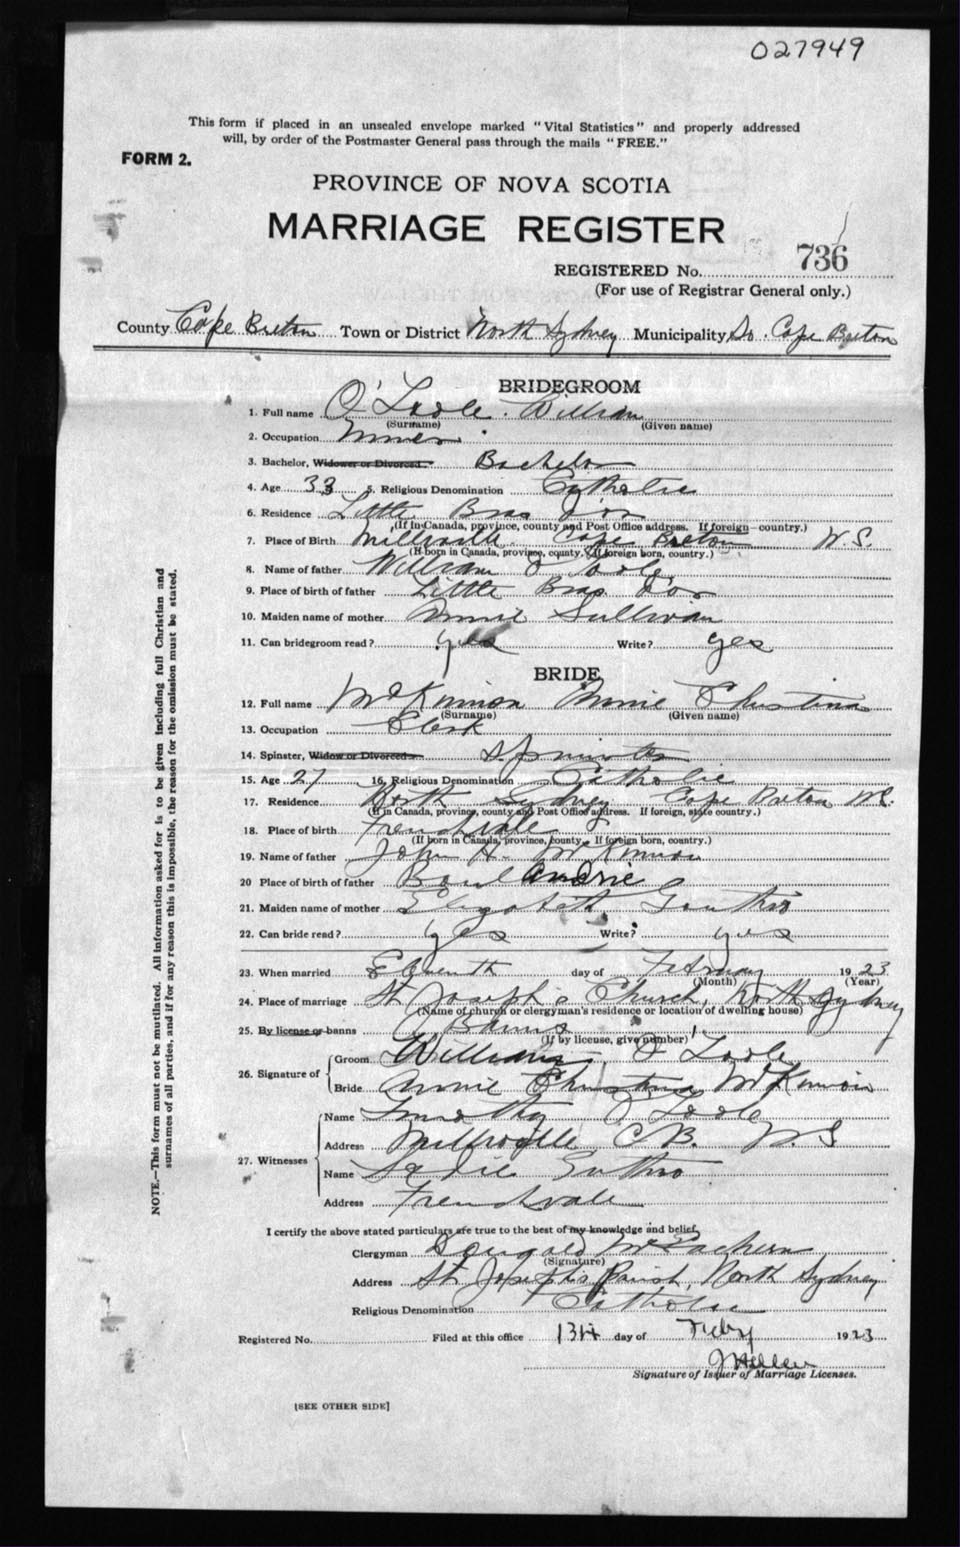 027949
This form if placed in an unsealed envelope marked "Vital Statistics" and properly addressed
will, by order of the Postmaster General pass through the mails "FREE."
FORM 2.
PROVINCE OF NOVA SCOTIA
MARRIAGE REGISTER
REGISTERED No. 736
(For use of Registrar General only.)
County Cape Breton Town or District North Sydney Municipality So. Cape Breton
BRIDEGROOM
1. Full name O'Toole William
(Surname) (Given name)
2. Occupation Miner
3. Bachelor, Widower or Divorced Bachelor
4. Age 33 5. Religious Denomination Catholic
6. Residence Little Bras d'or
(If in Canada, province, county and Post Office address. If foreign country.)
7. Place of Birth Millville Cape Breton N.S.
(If born in Canada, province, county. If foreign born, country.)
8. Name of father William O'Toole
9. Place of birth of father Little Bras D'or
10. Maiden name of mother Annie Sullivan
11. Can bridegroom read? yes Write? yes
BRIDE
12. Full name McKinnon Annie Christina
(Surname) (Given name)
13. Occupation Clerk
14. Spinster, Widow or Divorced Spinster
15. Age 21 16. Religious Denomination Catholic
17. Residence North Sydney Cape Breton N.S.
(If in Canada, province, county and Post Office address. If foreign, state country.)
18. Place of birth Frenchvale
(If born in Canada, province, county. If foreign born, country.)
19. Name of father John H. McKinnon
20 Place of birth of father Boulardrie
21. Maiden name of mother Elizabeth Gouthro
22. Can bride read? yes Write? yes
23. When married Eleventh day of February 1923
(Month) (Year)
24. Place of marriage St Joseph's Church, North Sydney
(Name of church or clergyman's residence or location of dwelling house)
25. By license or banns Banns
(If by license, give number)
26. Signature of Groom William O'Toole
Bride Annie Christina McKinnon
27. Witnesses Name Timothy O'Toole
Address Millville C.B. N.S
Name Sadie Guthro
Address Frenchvale
I certify the above stated particulars are true to the best of my knowledge and belief.
Clergyman Dougald McEachern
(Signature)
Address St Joseph's Parish, North Sydney
Religious Denomination Catholic
Registered No. Filed at this office 13th day of Feby 1923
Signature of Issuer of Marriage Licenses.
[SEE OTHER SIDE]
NOTE.—This form must not be mutilated. All information asked for is to be given including full Christian and
surnames of all parties, and if for any reason this is impossible, the reason for the omission must be stated.